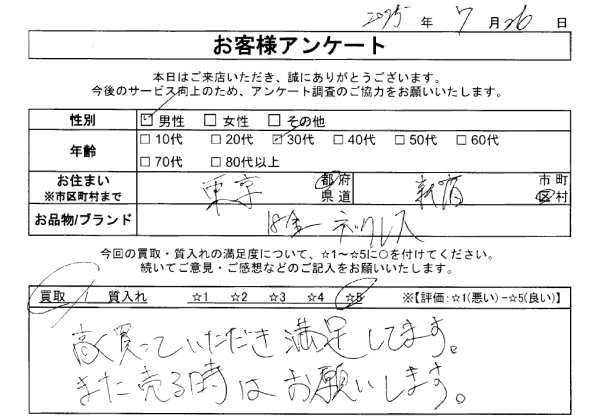 2025年7月26日
お客様アンケート
本日はご来店いただき、誠にありがとうございます。
今後のサービス向上のため、アンケート調査のご協力をお願いいたします。
性別 ☑男性 □女性 □その他
年齢 □10代 □20代 ☑30代 □40代 □50代 □60代
□70代 □80代以上
お住まい
※市区町村まで
東京 都府県道 新宿 市町区村
お品物/ブランド 18金 ネックレス
今回の買取・質入れの満足度について、☆1～☆5に○を付けてください。
続いてご意見・ご感想などのご記入をお願いいたします。
買取 / 質入れ ☆1 ☆2 ☆3 ☆4 ☆5 ※【評価:☆1(悪い)−☆5(良い)】
高く買っていただき満足してます。
また売る時はお願いします。